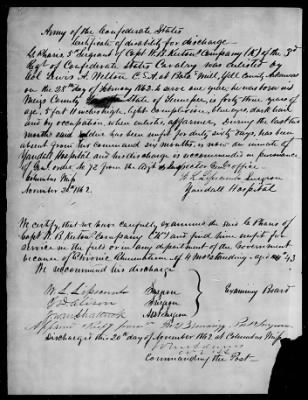 Army of the Confederate States
Certificate of disability for discharge
Sergeant of Capt W. B. Company (K) of the 3d
Regt of Confederate States Cavalry was enlisted by
Col Lewis A. C.S.A at Mill, County Arkansas
on the 28th day of February 1862, & one year, he was born in
County State of Tennessee, is forty three years of age,
5 feet 11 inches high, light Complexion, Gray eyes, dark hair
and by occupation, when enlisted, a farmer, During the last two
months said soldier has been unfit for duty sixty days, has been
absent from his command six months, is now an inmate of
Yandell Hospital and his discharge is recommended in pursuance
of Genl order No 72 from the Adjt & Inspector Genl's office
Columbus Miss
November 20th 1862.
W. L. Lipscomb Surgeon
Yandell Hospital
We certify, that we have carefully examined the said
Capt W. B. Company (K) and find him unfit for
service in the field or in any department of the Government
because of Chronic Rheumatism of 4 Mos standing. aged 43
We recommend his discharge
W. L. Lipscomb Surgeon
Surgeon
Asst Surgeon
Examining Board
Discharged this 20th day of November 1862 at Columbus Miss
Commanding the Post